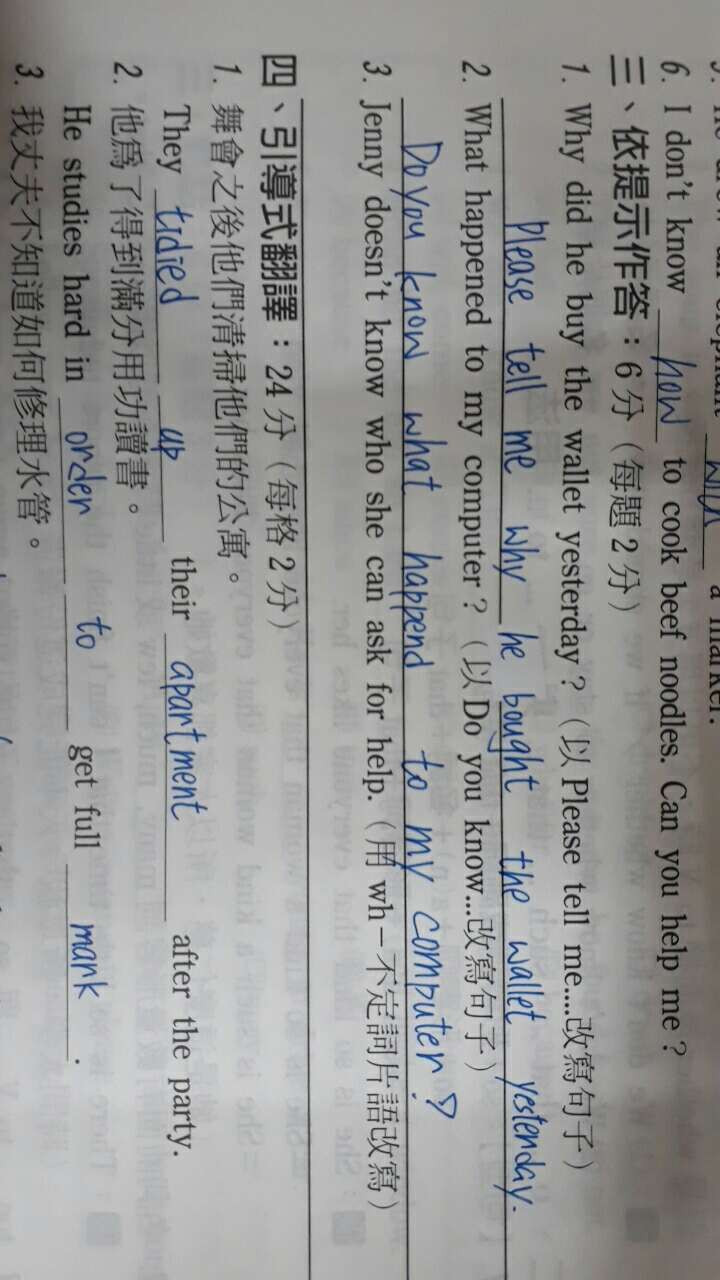 will a marker.
6. I don't know how to cook beef noodles. Can you help me?
三、依提示作答：6分（每題2分）
1. Why did he buy the wallet yesterday?（以Please tell me....改寫句子）
Please tell me why he bought the wallet yesterday.
2. What happened to my computer?（以Do you know...改寫句子）
Do you know what happend to my computer?
3. Jenny doesn't know who she can ask for help.（用 wh－不定詞片語改寫）
四、引導式翻譯：24分（每格2分）
1. 舞會之後他們清掃他們的公寓。
They tidied up their apartment after the party.
2. 他為了得到滿分用功讀書。
He studies hard in order to get full mark.
3. 我丈夫不知道如何修理水管。